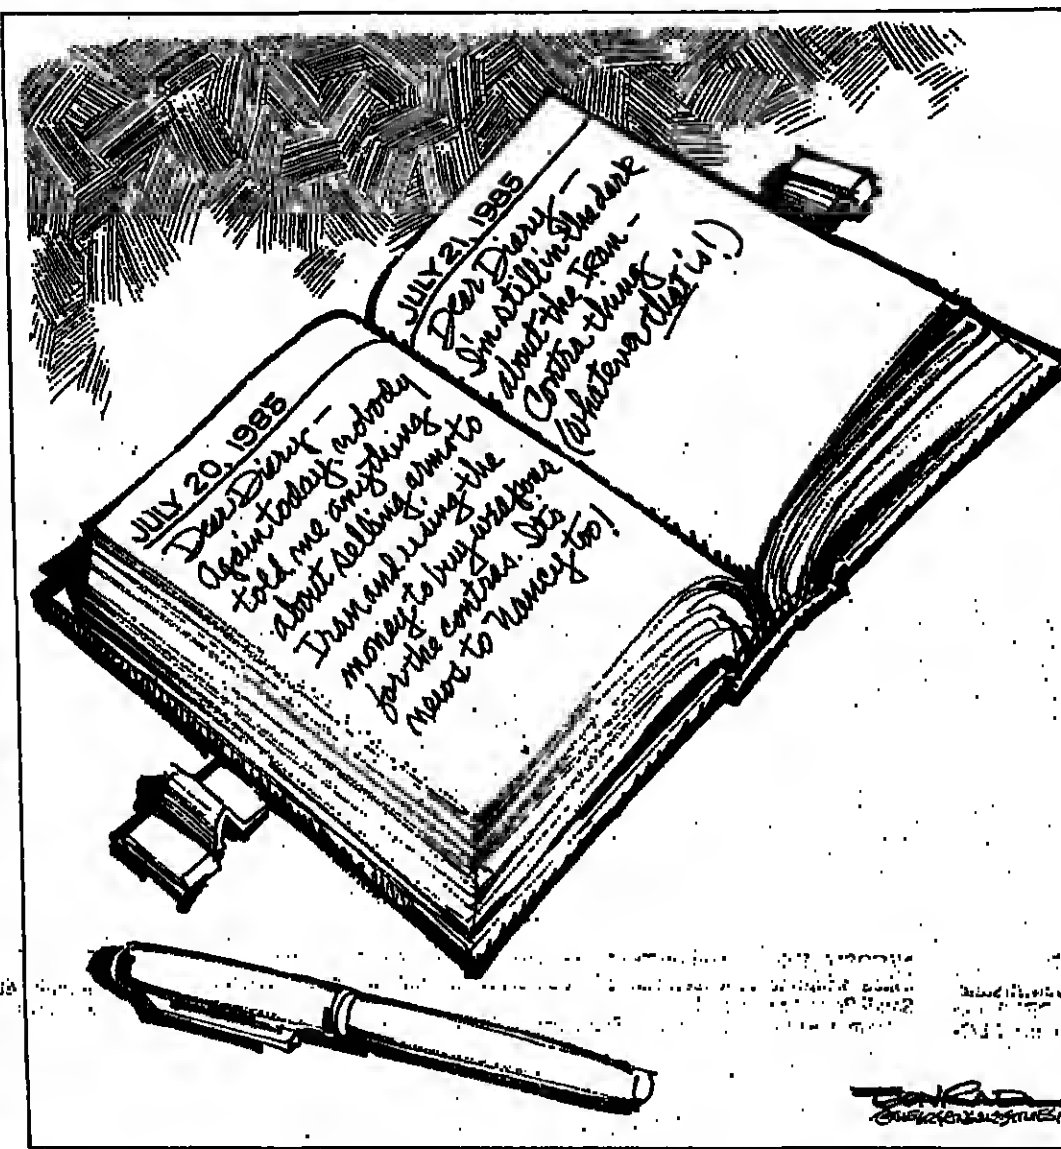 JULY 20, 1985
Dear Diary—
Again today, nobody
told me anything
about selling arms to
Iran and using the
money to buy weapons
for the contras. It's
news to Nancy too!
JULY 21, 1985
Dear Diary—
I'm still in the dark
about the Iran-
Contra thing
(whatever that is!)
CONRAD